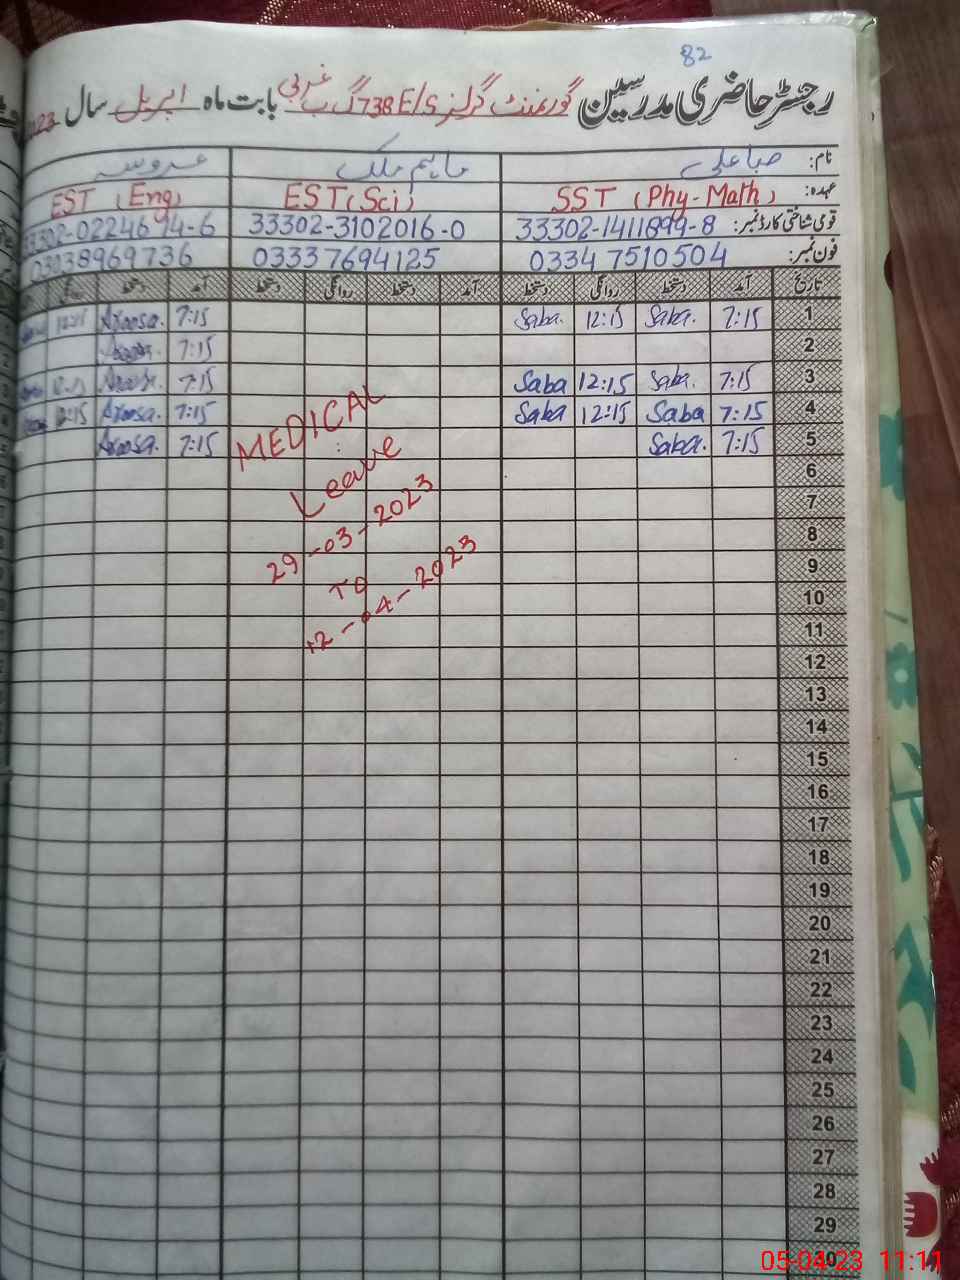 82
رجسٹر حاضری مدرسین گورنمنٹ گرلز E/S 738 گ ب غربی بابت ماہ اپریل سال 23
نام: صبا علی ماہم ملک عروسہ
عہدہ: SST (Phy-Math) EST (Sci) EST (Eng)
قومی شناختی کارڈ نمبر: 33302-1411899-8 33302-3102016-0 33302-0224694-6
فون نمبر: 03347510504 03337694125 03038969736
تاریخ آمد دستخط روانگی دستخط آمد دستخط روانگی دستخط آمد دستخط روانگی
1 7:15 Saba. 12:15 Saba. 7:15 Aroosa.
2 7:15
3 7:15 Saba. 12:15 Saba 7:15 Aroosa.
4 7:15 Saba 12:15 Saba 7:15 Aroosa. 12:15
5 7:15 Saba. 7:15 Aroosa.
MEDICAL
Leave
29-03-2023
TO
12-04-2023
6
7
8
9
10
11
12
13
14
15
16
17
18
19
20
21
22
23
24
25
26
27
28
29
05-04-23 11:11